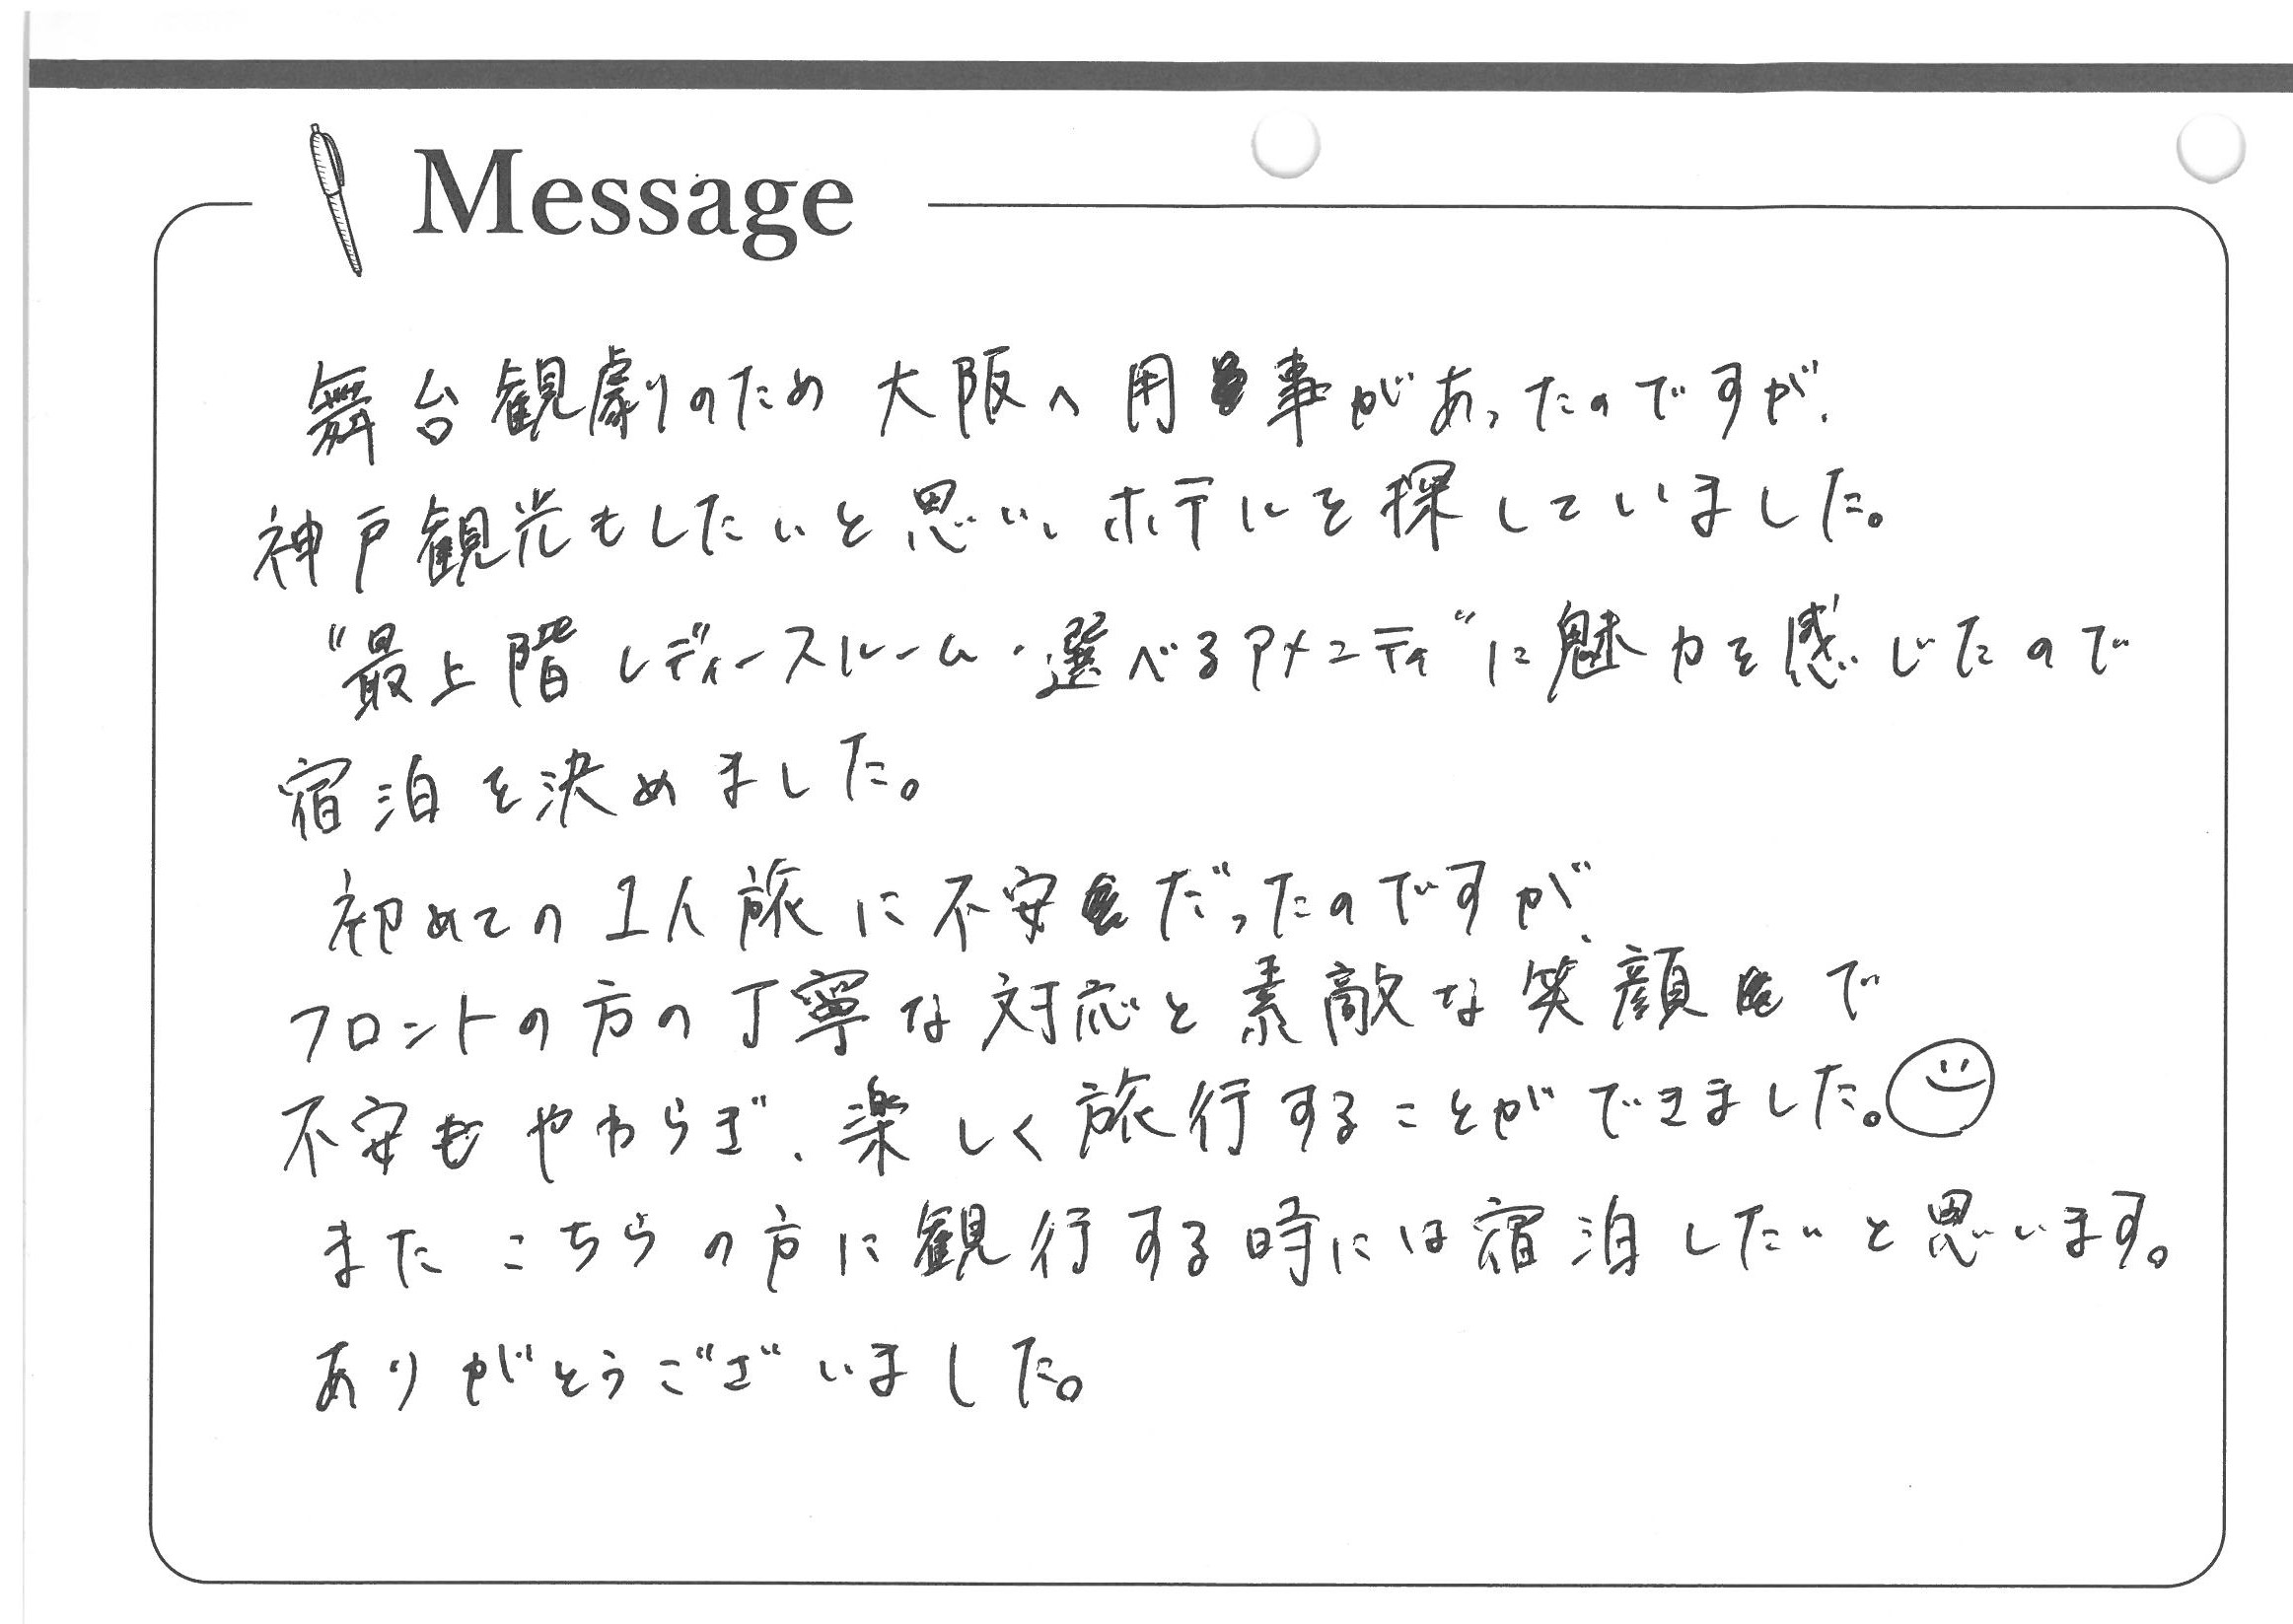 Message
舞台観劇のため 大阪へ 用事があったのですが、
神戸観光もしたいと思い、ホテルを探していました。
"最上階レディースルーム・選べるアメニティ"に魅力を感じたので
宿泊を決めました。
初めての1人旅に不安だったのですが、
フロントの方の丁寧な対応と素敵な笑顔で
不安もやわらぎ、楽しく旅行することができました。
また こちらの方に観行する時には宿泊したいと思います。
ありがとうございました。